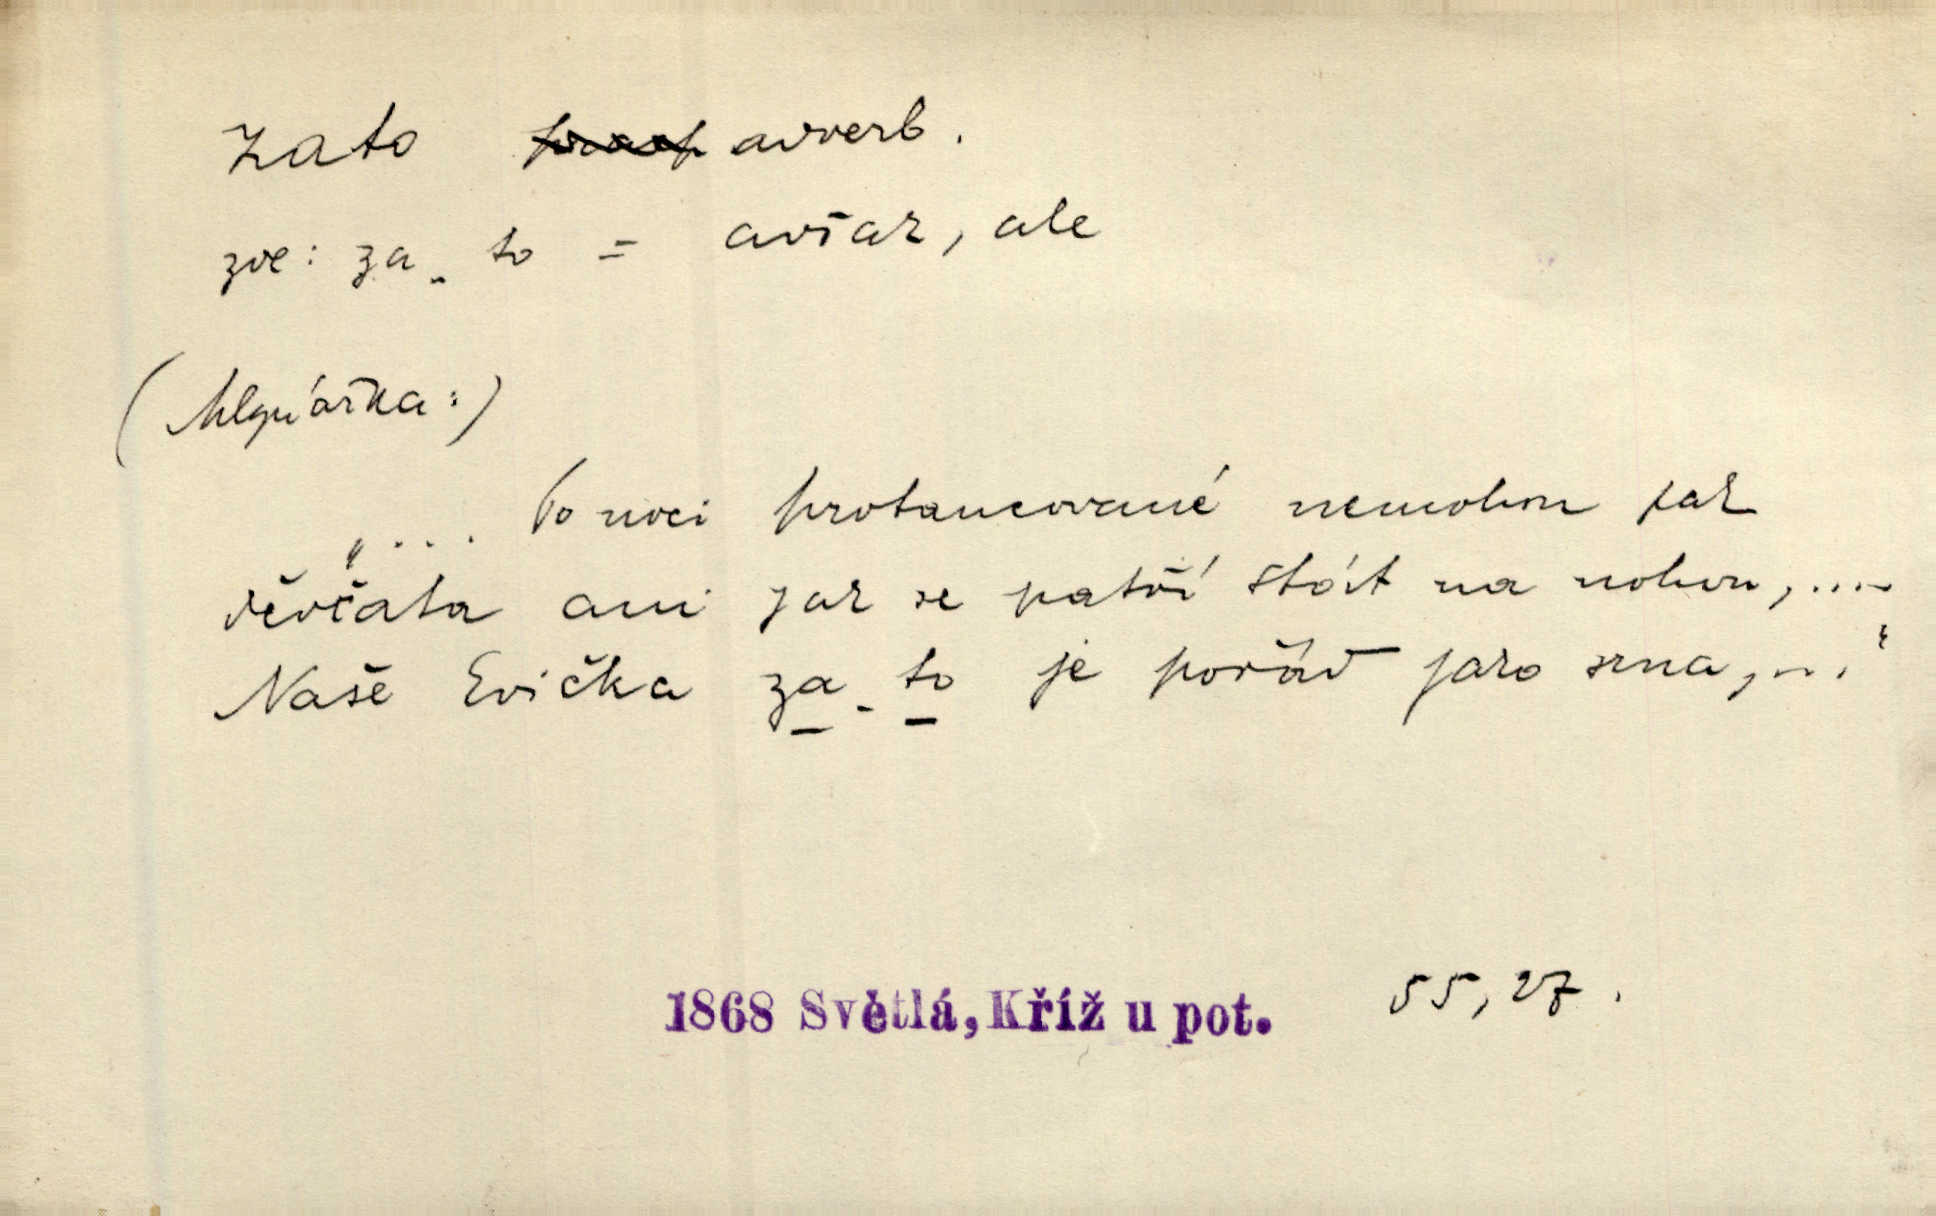 zato adverb.
zde: za to = avšak, ale
(Mlynářka:)
„.... Po noci protancované nemohou pak
děvčata ani jak se patří stát na nohou, ....
Naše Evička za to je pořád jako srna, ...“
1868 Světlá, Kříž u pot. 55, 27.